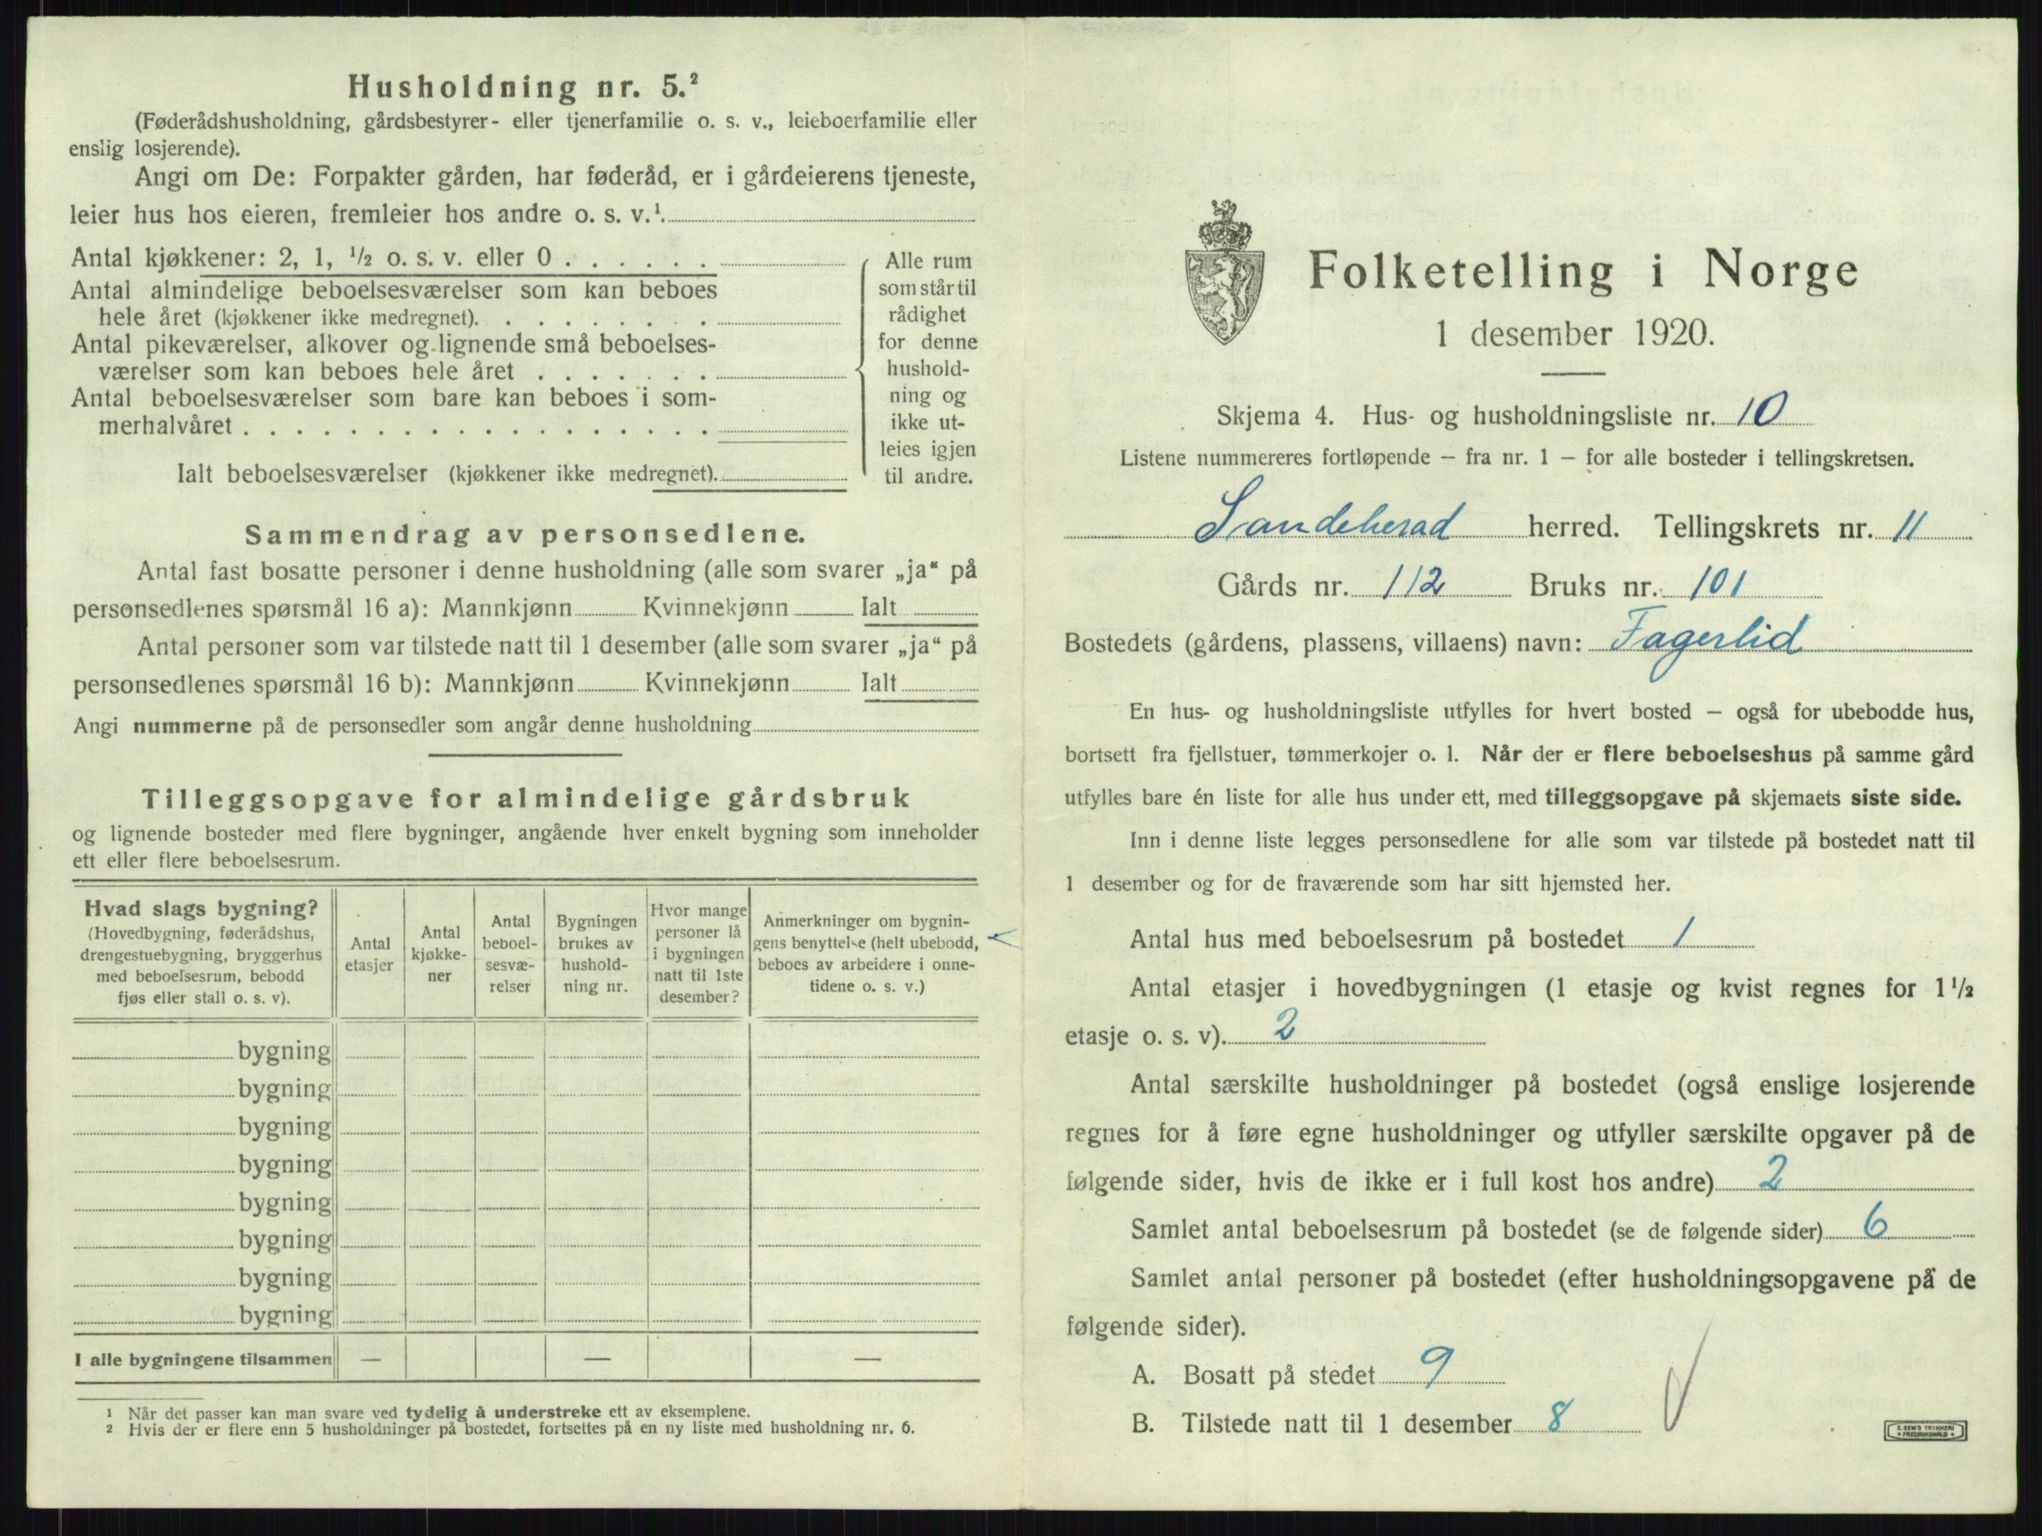 Husholdning nr. 5.²
(Føderådshusholdning, gårdsbestyrer- eller tjenerfamilie o. s. v., leieboerfamilie eller
enslig losjerende).
Angi om De: Forpakter gården, har føderåd, er i gårdeierens tjeneste,
leier hus hos eieren, fremleier hos andre o. s. v.¹
Antal kjøkkener: 2, 1, ½ o. s. v. eller 0
Antal almindelige beboelsesværelser som kan beboes
hele året (kjøkkener ikke medregnet).
Antal pikeværelser, alkover og lignende små beboelses-
værelser som kan beboes hele året
Antal beboelsesværelser som bare kan beboes i som-
merhalvåret
Ialt beboelsesværelser (kjøkkener ikke medregnet).
Alle rum
som står til
rådighet
for denne
hushold-
ning og
ikke ut-
leies igjen
til andre.
Sammendrag av personsedlene.
Antal fast bosatte personer i denne husholdning (alle som svarer „ja“ på
personsedlenes spørsmål 16 a): Mannkjønn Kvinnekjønn Ialt
Antal personer som var tilstede natt til 1 desember (alle som svarer „ja“ på
personsedlenes spørsmål 16 b): Mannkjønn Kvinnekjønn Ialt
Angi nummerne på de personsedler som angår denne husholdning
Tilleggsopgave for almindelige gårdsbruk
og lignende bosteder med flere bygninger, angående hver enkelt bygning som inneholder
ett eller flere beboelsesrum.
Hvad slags bygning?
(Hovedbygning, føderådshus,
drengestuebygning, bryggerhus
med beboelsesrum, bebodd
fjøs eller stall o. s. v).
Antal
etasjer
Antal
kjøkke-
ner
Antal
beboel-
sesvæ-
relser
Bygningen
brukes av
hushold-
ning nr.
Hvor mange
personer lå
i bygningen
natt til 1ste
desember?
Anmerkninger om bygnin-
gens benyttelse (helt ubebodd,
beboes av arbeidere i onne-
tidene o. s. v.)
bygning
bygning
bygning
bygning
bygning
bygning
bygning
bygning
I alle bygningene tilsammen — — —
¹ Når det passer kan man svare ved tydelig å understreke ett av eksemplene.
² Hvis der er flere enn 5 husholdninger på bostedet, fortsettes på en ny liste med husholdning nr. 6.
Folketelling i Norge
1 desember 1920.
Skjema 4. Hus- og husholdningsliste nr. 10
Listene nummereres fortløpende – fra nr. 1 – for alle bosteder i tellingskretsen.
Sandeherad herred. Tellingskrets nr. 11
Gårds nr. 112 Bruks nr. 101
Bostedets (gårdens, plassens, villaens) navn: Fagerlid
En hus- og husholdningsliste utfylles for hvert bosted – også for ubebodde hus,
bortsett fra fjellstuer, tømmerkojer o. l. Når der er flere beboelseshus på samme gård
utfylles bare én liste for alle hus under ett, med tilleggsopgave på skjemaets siste side.
Inn i denne liste legges personsedlene for alle som var tilstede på bostedet natt til
1 desember og for de fraværende som har sitt hjemsted her.
Antal hus med beboelsesrum på bostedet 1
Antal etasjer i hovedbygningen (1 etasje og kvist regnes for 1½
etasje o. s. v). 2
Antal særskilte husholdninger på bostedet (også enslige losjerende
regnes for å føre egne husholdninger og utfyller særskilte opgaver på de
følgende sider, hvis de ikke er i full kost hos andre) 2
Samlet antal beboelsesrum på bostedet (se de følgende sider) 6
Samlet antal personer på bostedet (efter husholdningsopgavene på de
følgende sider).
A. Bosatt på stedet 9
B. Tilstede natt til 1 desember 8